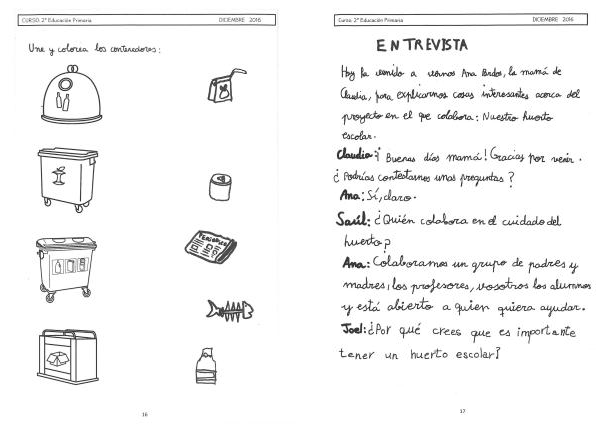 CURSO: 2º Educación Primaria DICIEMBRE 2016
Une y colorea los contenedores:
PERIODICO
16
Curso: 2º Educación Primaria DICIEMBRE 2016
ENTREVISTA
Hoy ha venido a vernos Ana Bordos, la mamá de
Claudia, para explicarnos cosas interesantes acerca del
proyecto en el que colabora: Nuestro huerto
escolar.
Claudia: ¡Buenos días mamá! Gracias por venir.
¿Podrías contestarnos unas preguntas?
Ana: Sí, claro.
Saúl: ¿Quién colabora en el cuidado del
huerto?
Ana: Colaboramos un grupo de padres y
madres, los profesores, vosotros los alumnos
y está abierto a quien quiera ayudar.
Joel: ¿Por qué crees que es importante
tener un huerto escolar?
17